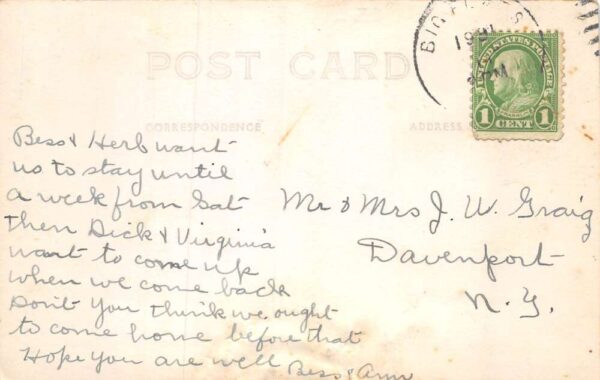 POST CARD
CORRESPONDENCE
ADDRESS
1931
PM
UNITED STATES POSTAGE
FRANKLIN
1 CENT 1
Bess & Herb want
us to stay until
a week from Sat
then Dick & Virginia
want to come up
when we come back
Don't you think we ought
to come home before that
Hope you are well
Bess & Ann
Mr & Mrs J. W. Graig
Davenport
N. Y.